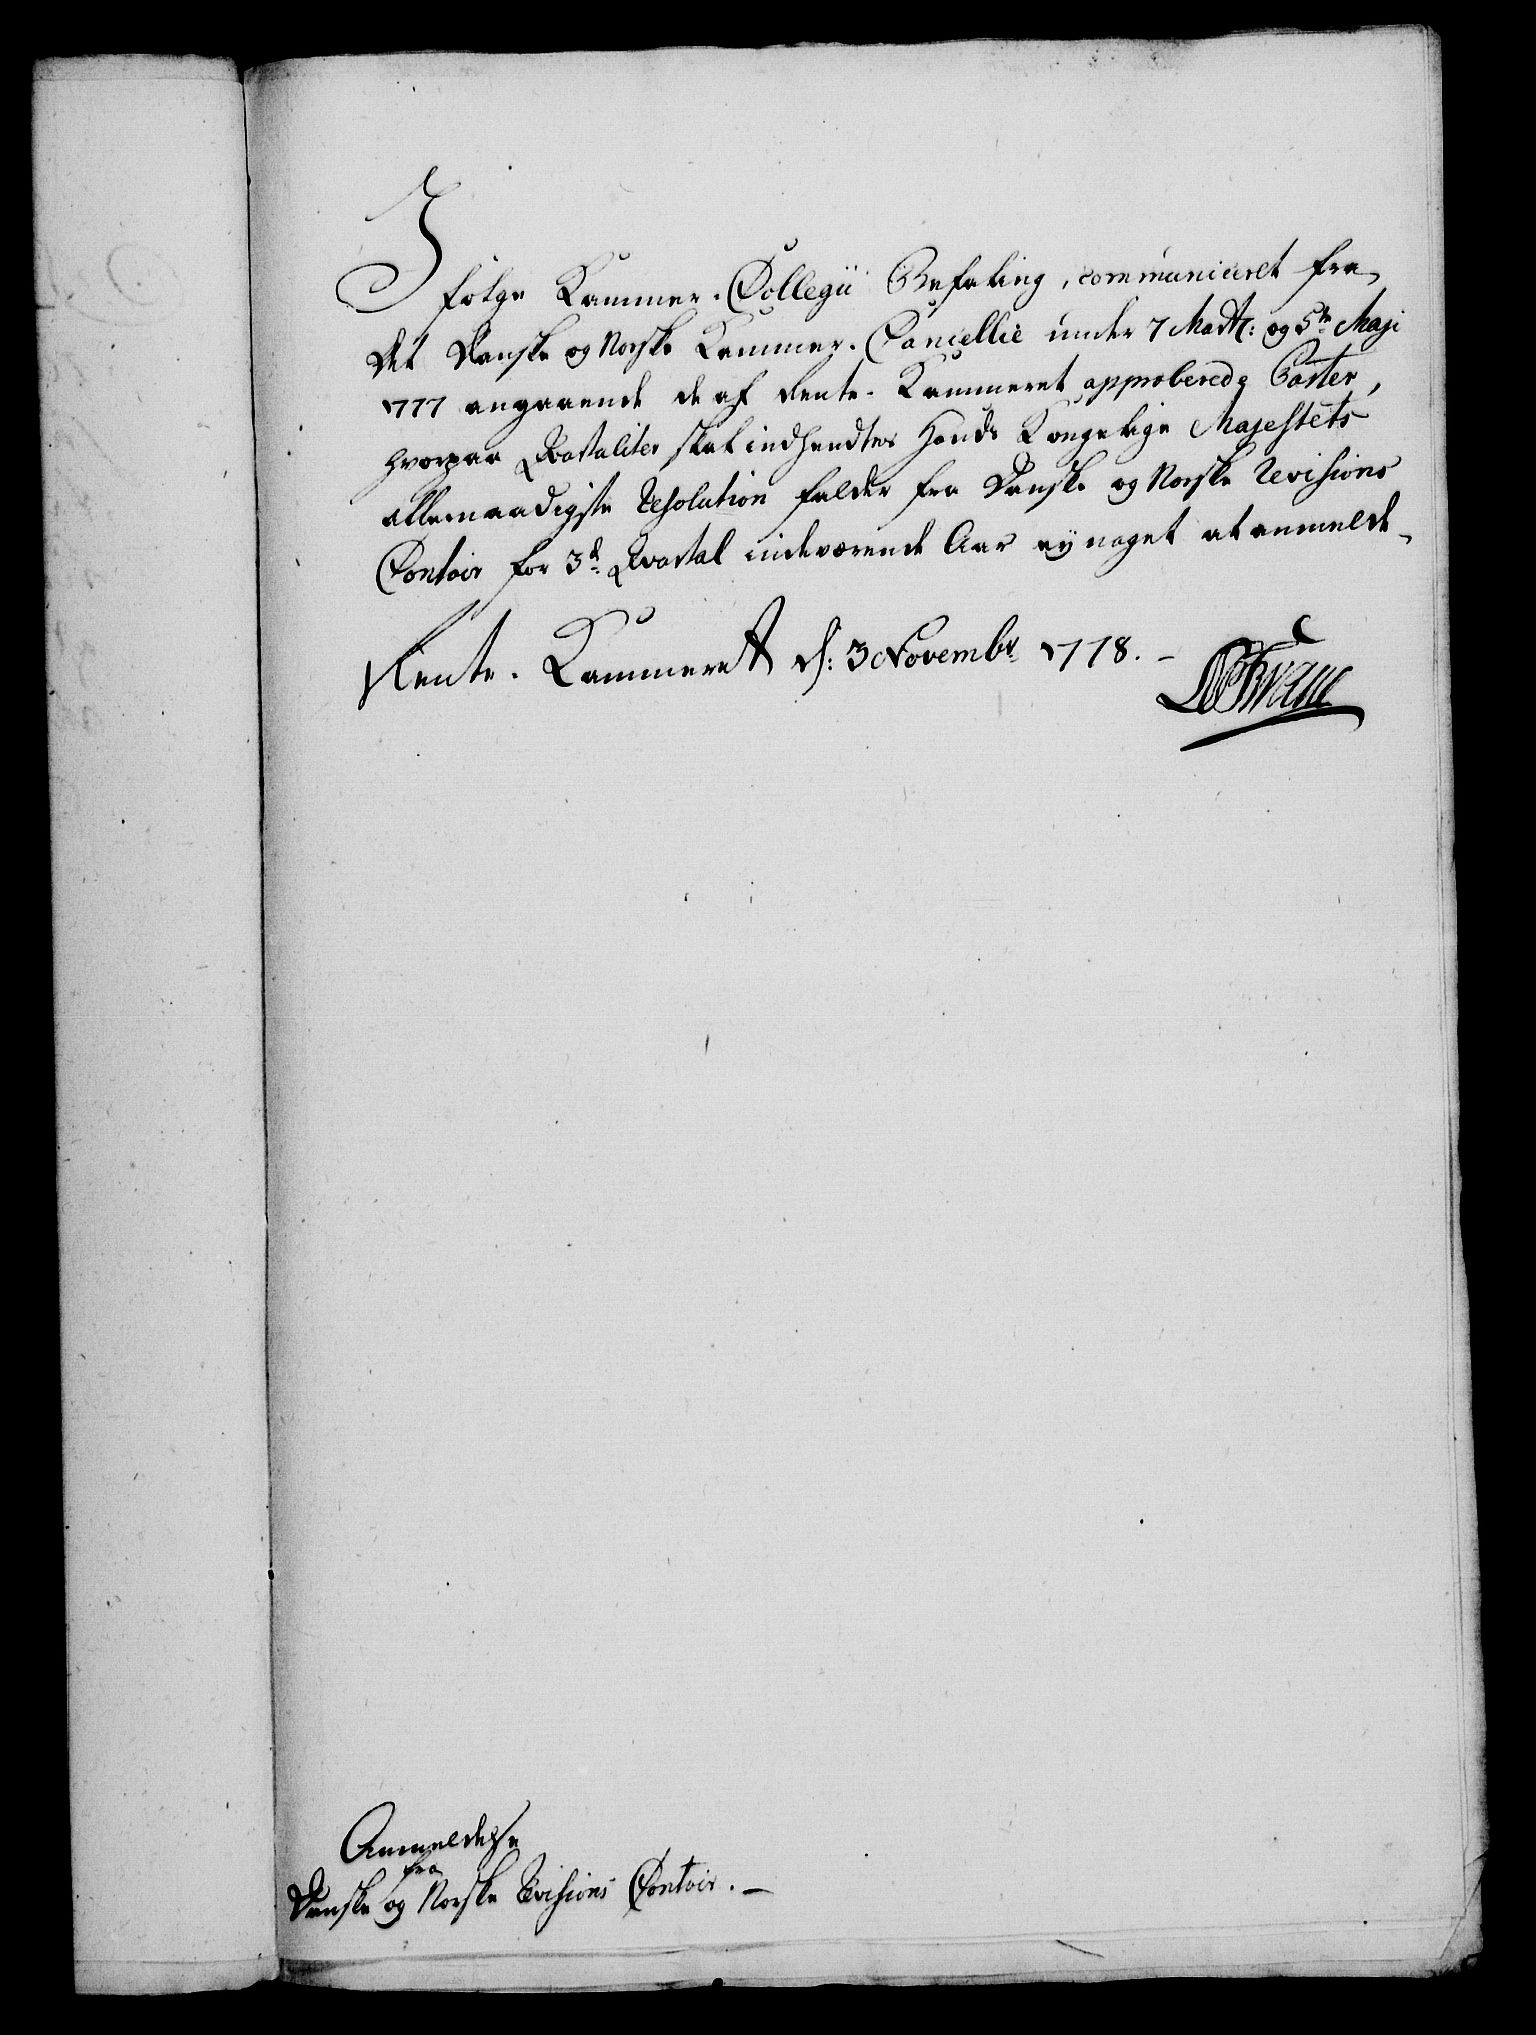 I
følge Kammer-Collegii Befaling, communiceret fra
det Danske og Norske Kammer-Cancellie under 7 Martz: og 5te Maji
1777 angaaende de af Rente-Kammeret approberede Poster,
hvorpaa Qvartaliter skal indhendtes Hands Kongelige Majestets
allernaadigste Resolution falder fra Danske og Norske Revisions
Contoir for 3de Qvartal indeværende Aar ey noget at anmelde-
Rente-Kammeret d: 3 Novembr 1778. -
Anmeldelse
fra
Danske og Norske Revisions Contoir. -